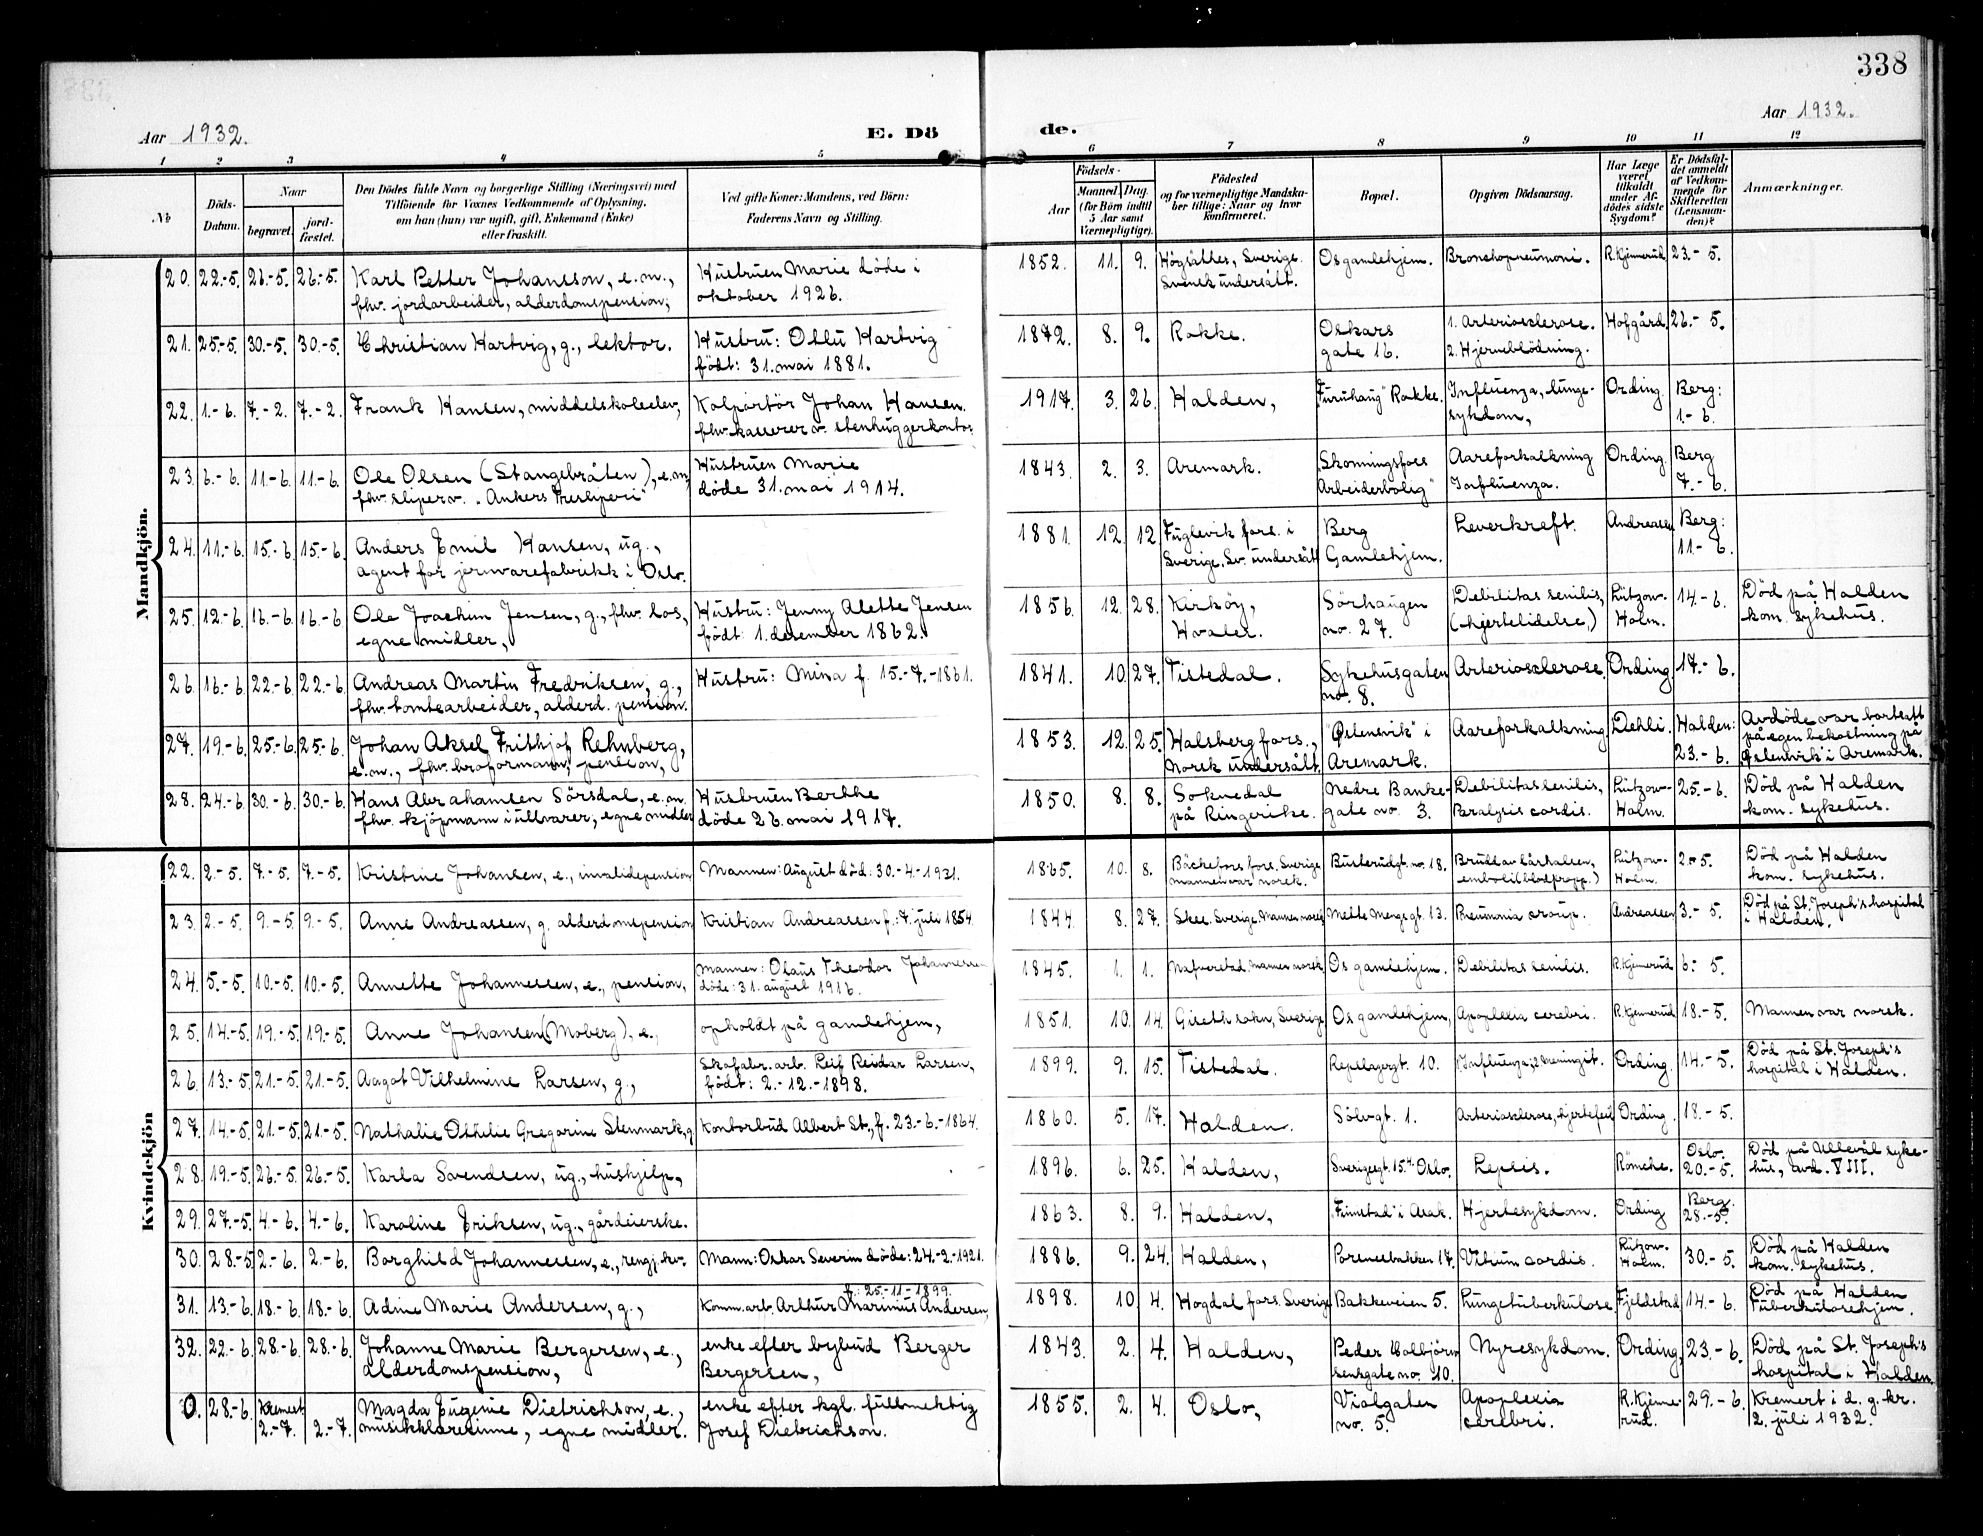 338
Aar 1932.
E. Dö
de.
Aar 1932.
1 2 3 4 5 6 7 8 9 10 11 12
№
Döds-Datum.
Naar
begravet.
jord-fæstet.
Den Dödes fulde Navn og borgerlige Stilling (Næringsvei) med
Tilföiende for Voxnes Vedkommende af Oplysning,
om han (hun) var ugift, gift, Enkemand (Enke)
eller fraskilt.
Ved gifte Koner: Mandens, ved Börn:
Faderens Navn og Stilling.
Födsels-
Aar
Maaned. Dag.
(for Börn indtil
5 Aar samt
Værnepligtige).
Födested
og for værnepligtige Mandska-
ber tillige: Naar og hvor
konfirmeret.
Bopæl.
Opgiven Dödsaarsag.
Har Læge
været
tilkaldt
under Af-
dödes sidste
Sygdom?
Er Dödsfal-
det anmeldt
af Vedkom-
mende for
Skifteretten
(Lensman-
den)?
Anmærkninger.
Mandkjön.
20. 22.-5. 26.-5. 26.-5. Karl Petter Johansson, e.m., Hustruen Marie döde i 1852. 11. 9. Sverige. Os gamlehjem. Bronchopneumoni. R. Kjennerud. 23.-5.
fhv. jordarbeider, alderdomspension, oktober 1926. Svensk undersått.
21. 25.-5. 30.-5. 30.-5. Christian Hartvig, g., lektor. Hustru: Ollu Hartvig 1872. 8. 9. Rokke. Oskars 1. Arteriosclerose. Hofgård. 26.-5.
födt: 31. mai 1881. gate 16. 2. Hjerneblödning.
22. 1.-6. 7.-2. 7.-2. Frank Hansen, middelskoleelev, Kolportör Johan Hansen. 1917. 3. 26. Halden, "Furuhaug" Rokke. Influenza, lunge- Ording. Berg:
fhv. kasserer v. stenhuggerkontor. sykdom, 1.-6.
23. 6.-6. 11.-6. 11.-6. Ole Olsen (Stangebråten), e.m. Hustruen Marie 1843. 2. 3. Aremark. "Skonningsfoss Aareforkalkning Ording. Berg
fhv. sliper v. "Ankers Tresliperi" döde 31. mai 1914. Arbeiderbolig" Influenza. 7.-6.
24. 11.-6. 15.-6. 15.-6. Anders Emil Hansen, ug., 1881. 12. 12. Fuglevik fors. i Berg Leverkreft. Andreassen Berg:
agent for jernvarefabrikk i Oslo. Sverige. Sv. undersått Gamlehjem. 11.-6.
25. 12.-6. 16.-6. 16.-6 Ole Joachim Jensen, g., fhv. los, Hustru: Jenny Alette Jensen 1856. 12. 28. Kirköy, Sörhaugen Debilitas senilis, Lützow- 14.-6. Död på Halden
egne midler, födt: 1. desember 1862. Hvaler. no. 27. (hjertelidelse,) Holm. kom. sykehus.
26. 16.-6. 22.-6. 22.-6. Andreas Martin Fredriksen, g., Hustru: Mina f. 15.-7.-1861. 1841. 10. 27. Tistedal. Sykehusgaten Arteriosclerose. Ording. 17.-6.
fhv. tomtearbeider, alderd. pension. no. 8.
27. 19.-6. 25.-6. 25.-6. Johan Aksel Frithjof Rehnberg, 1853. 12. 25. Halsberg fors., "Östensvik" i Aareforkalkning. Dehli. Halden: Avdöde var bortsatt
e.m., fhv. broformann, pension, Norsk undersått. Aremark. 23.-6. på egen bekostning på "Östensvik" i Aremark.
28. 24.-6. 30.-6. 30.-6. Hans Abrahamsen Sörsdal, e.m. Hustruen Berthe 1850. 8. 8. Soknedal Nedre Banke- Debilitas senilis, Lützow- 25.-6. Död på Halden
fhv. kjöpmann i ullvarer, egne midler döde 26. mai 1917. på Ringerike. gate no. 3. Paralysis cordis. Holm. kom. sykehus.
Kvindekjön
22. 2.-5. 7.-5. 7.-5. Kristine Johansen, e., invalidepension Mannen: August död: 30.-4.-1921. 1865. 10. 8. Bäckefors fors. Sverige Busterudgt. no. 18. Brudd av lårhalsen, Lützow- 2.-5. Död på Halden
mannen var norsk. emboli (blodpropp.) Holm. kom. sykehus.
23. 2.-5. 9.-5. 9.-5. Anne Andreassen, g. alderdomspension Kristian Andreassen f.: 7. juli 1854. 1844. 8. 27. Skee. Sverige. Mannen norsk Mette Mengs gt. 13. Pneumnia croup. Andreassen 3.-5. Död på St. Joseph's hospital
i Halden.
24. 5.-5. 10.-5. 10.-5. Annette Johannessen, e., pension, Mannen: Olaus Theodor Johannessen 1845. 1. 1. Naverstad. mannen norsk. Os gamlehjem. Debilitas senilis. R. Kjennerud 6.-5.
döde: 31. august 1916.
25. 14.-5. 19.-5. 19.-5. Anne Johansen (Moberg), e., opholdt på gamlehjem, 1851. 10. 14. sokn, Sverige. Os gamlehjem, Apoplexia cerebri. R. Kjennerud 18.-5. Mannen var norsk.
26. 13.-5. 21.-5. 21.-5. Aagot Vilhelmine Larsen, g., Skofabr. arb. Leif Reidar Larsen, 1899. 9. 15. Tistedal. Repslagergt. 10. Influenza, Meningit. Ording. 14.-5. Död på St. Joseph's
födt: 2.-12.-1898. hospital i Halden.
27. 14.-5. 21.-5. 21.-5. Nathalie Othilie Gregorine Stenmark, g. Kontorbud Albert St., f. 23.-6.-1864. 1860. 5. 17. Halden. Sölvgt. 1. Arteriosclerose, hjertefeil Ording. 18.-5.
28. 19.-5. 26.-5. 26.-5. Karla Svendsen, ug., hushjelp, 1896. 6. 25. Halden, Sverigesgt. 15.4. Oslo. Sepsis. Römcke. Oslo. 20.-5. Död på Ullevål syke-
hus, avd. VIII.
29. 27.-5. 4.-6. 4.-6. Karoline Eriksen, ug., gårdeierske. 1863. 8. 9. Halden, "Finnestad" i Asak. Hjertesykdom. Ording Berg. 28.-5.
30. 28.-5 2.-6. 2.-6. Borghild Johannessen, e., rengj. kv. Mann: Oskar Severin döde: 24.-2.-1921. 1886. 9. 24. Halden, Porsnesbakken 17. Vitium cordis. Lützow- Holm. 30.-5. Död på Halden
kom. sykehus.
f.: 25.-11-1899.
31. 13.-6. 18.-6. 18.-6. Adine Marie Andersen, g., Komm. arb. Arthur Marinius Andersen, 1898. 10. 4. Hogdal fors. Sverige Bakkeveien 5. Lungetuberkulose Fjeldstad 14.-6. Död på Halden
Tuberkulosehjem.
32. 22.-6 28.-6. 28.-6. Johanne Marie Bergersen, e., enke efter bybud Berger 1843. 2. 4. Halden, Peder Colbjörn- Nyresykdom. Ording, 23.-6. Död på St. Joseph's
alderdomspension, Bergersen, sensgate no. 10. hospital i Halden.
0. 28.-6. Kremert Magda Eugenie Dietrichson, e., enke efter kgl. fullmektig 1855. 2. 4. Oslo, Violgaten Apoplexia R. Kjenne- 29.-6. Kremert i d. g. kr.
2.-7. 2.-7. musikklærerinne, egne midler. Josef Dietrichson. no. 5. cerebri. rud. 2. juli 1932.